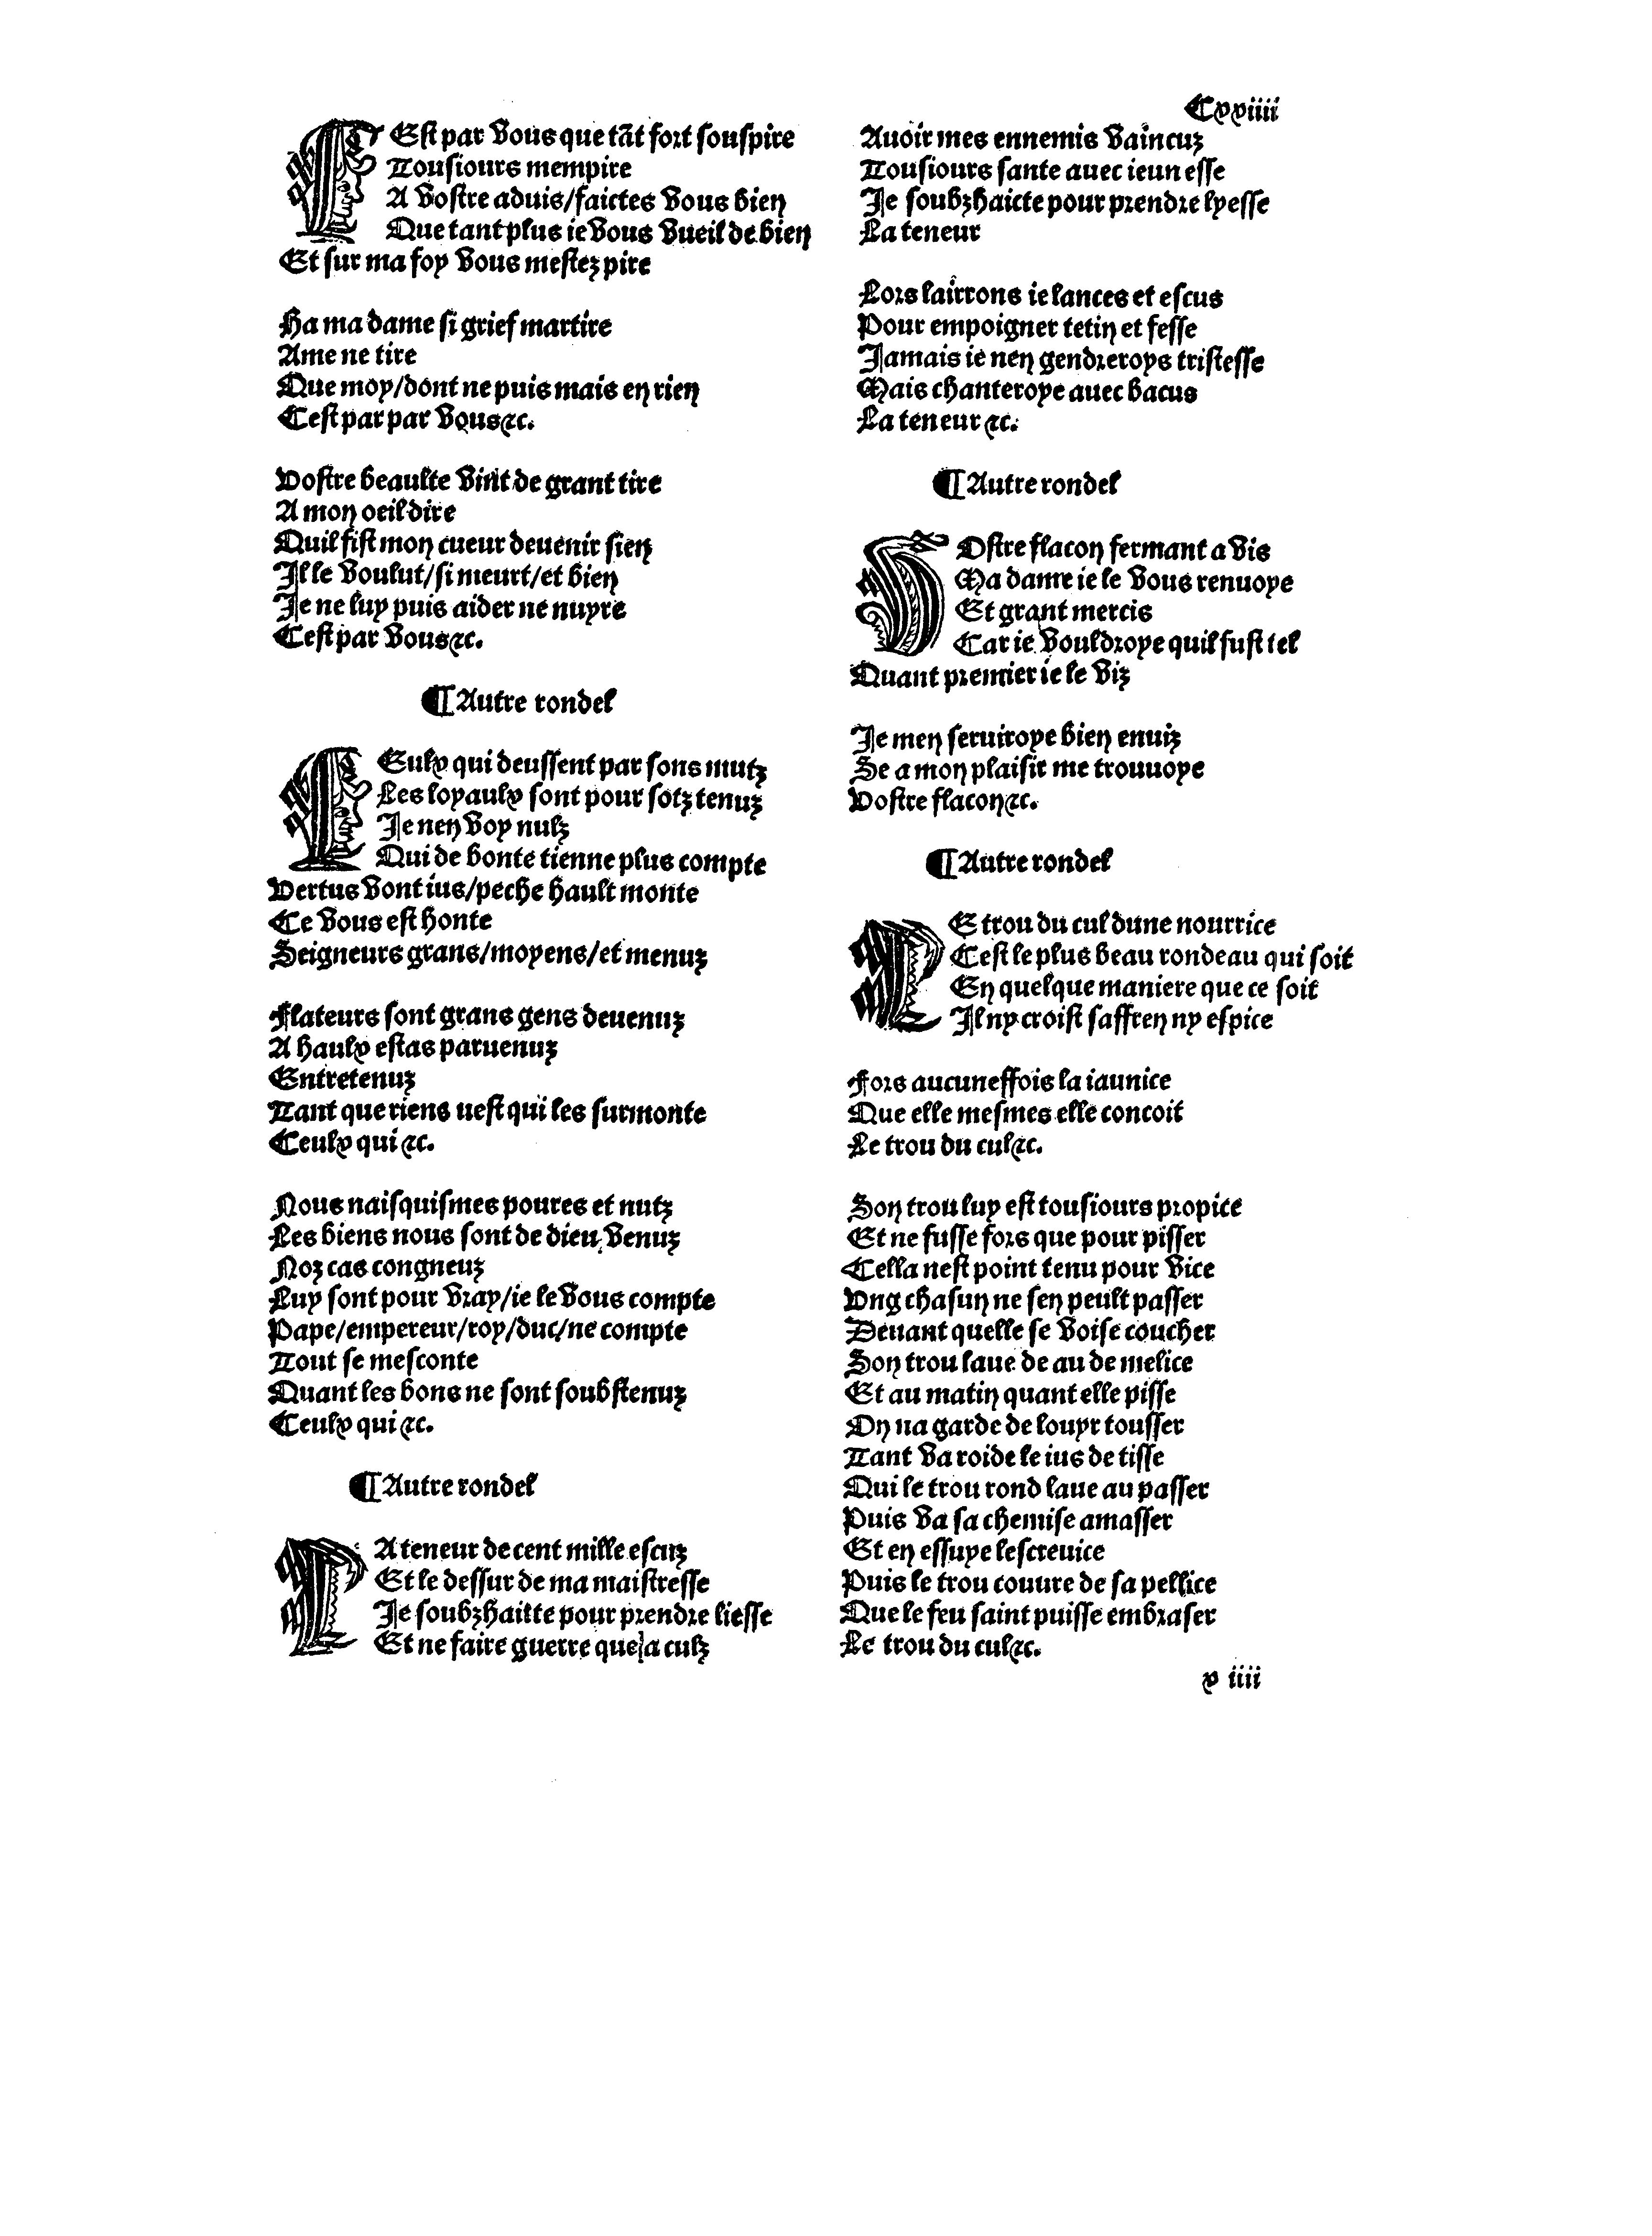 Cxxiiii
CEst par vous que tãt fort souspire
Tousiours mempire
A vostre aduis/faictes vous bien
Que tant plus ie vous vueil de bien
Et sur ma foy vous mestez pire
Ha ma dame si grief martire
Ame ne tire
Que moy/dont ne puis mais en rien
Cest par par vous⁊c.
Vostre beaulte vint de grant tire
A mon oeil dire
Quil fist mon cueur deuenir sien
Il le voulut/si meurt/et bien
Je ne luy puis aider ne nuyre
Cest par vous⁊c.
¶Autre rondel
CEulx qui deussent par sons mutz
Les loyaulx sont pour sotz tenuz
Je nen voy nulz
Qui de bonte tienne plus compte
Vertus vont ius/peche hault monte
Ce vous est honte
Seigneurs grans/moyens/et menuz
Flateurs sont grans gens deuenuz
A haulx estas paruenuz
Entretenuz
Tant que riens nest qui les surmonte
Ceulx qui ⁊c.
Nous naisquismes poures et nutz
Les biens nous sont de dieu venuz
Noz cas congneuz
Luy sont pour vray/ie le vous compte
Pape/empereur/roy/duc/ne compte
Tout se mesconte
Quant les bons ne sont soubstenuz
Ceulx qui ⁊c.
¶Autre rondel
LA teneur de cent mille escuz
Et le dessur de ma maistresse
Je soubzhaitte pour prendre liesse
Et ne faire guerre que a culz
Auoir mes ennemis vaincuz
Tousiours sante auec ieun esse
Je soubzhaicte pour prendre lyesse
La teneur
Lors lairrons ie lances et escus
Pour empoigner tetin et fesse
Jamais ie nen gendreroys tristesse
Mais chanteroye auec bacus
La teneur ⁊c.
¶Autre rondel
VOstre flacon fermant a vis
Ma dame ie le vous renuoye
Et grant mercis
Car ie vouldroye quil fust tel
Quant premier ie le viz
Je men seruiroye bien enuiz
Se a mon plaisir me trouuoye
Vostre flacon⁊c.
¶Autre rondel
LE trou du cul dune nourrice
Cest le plus beau rondeau qui soit
En quelque maniere que ce soit
Il ny croist saffren ny espice
Fors aucuneffois la iaunice
Que elle mesmes elle concoit
Le trou du cul⁊c.
Son trou luy est tousiours propice
Et ne fusse fors que pour pisser
Cella nest point tenu pour vice
Vng chasun ne sen peult passer
Deuant quelle se voise coucher
Son trou laue de au de melice
Et au matin quant elle pisse
On na garde de louyr tousser
Tant va roide le ius de tisse
Qui le trou rond laue au passer
Puis va sa chemise amasser
Et en essuye lescreuice
Puis le trou couure de sa pellice
Que le feu saint puisse embraser
Le trou du cul⁊c.
x iiii